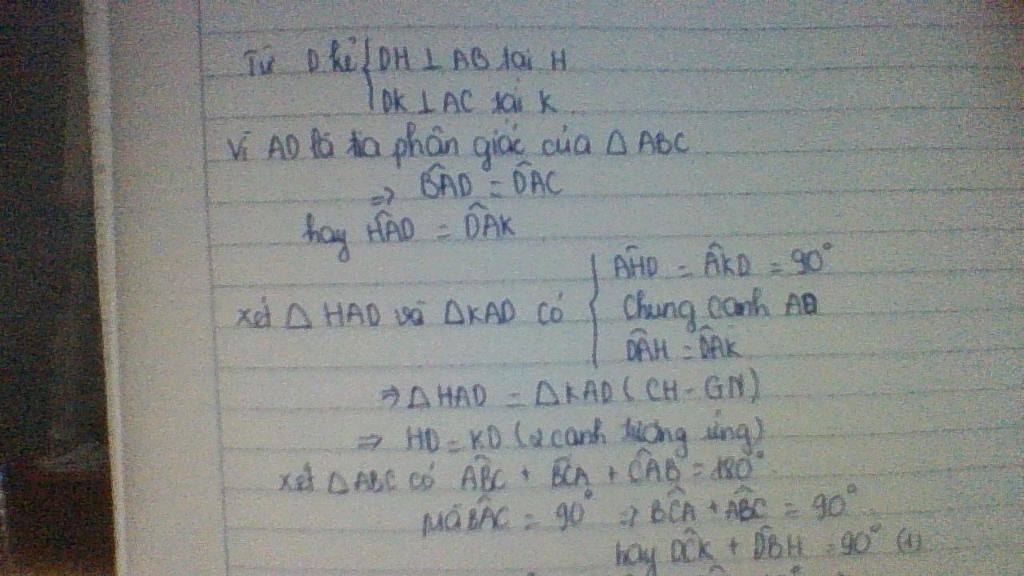 Từ D kẻ { DH ⊥ AB tại H
DK ⊥ AC tại K
Vì AD là tia phân giác của Δ ABC
=> BÂD = DÂC
hay HÂD = DÂK
AĤD = AK̂D = 90°
Xét Δ HAD và ΔKAD có { Chung cạnh AD
DÂH = DÂK
=> Δ HAD = Δ KAD (CH - GN)
=> HD = KD (2 cạnh tương ứng)
Xét Δ ABC có AB̂C + BĈA + CÂB = 180°
Mà BÂC = 90° => BĈA + AB̂C = 90°
hay DĈK + DB̂H = 90° (1)